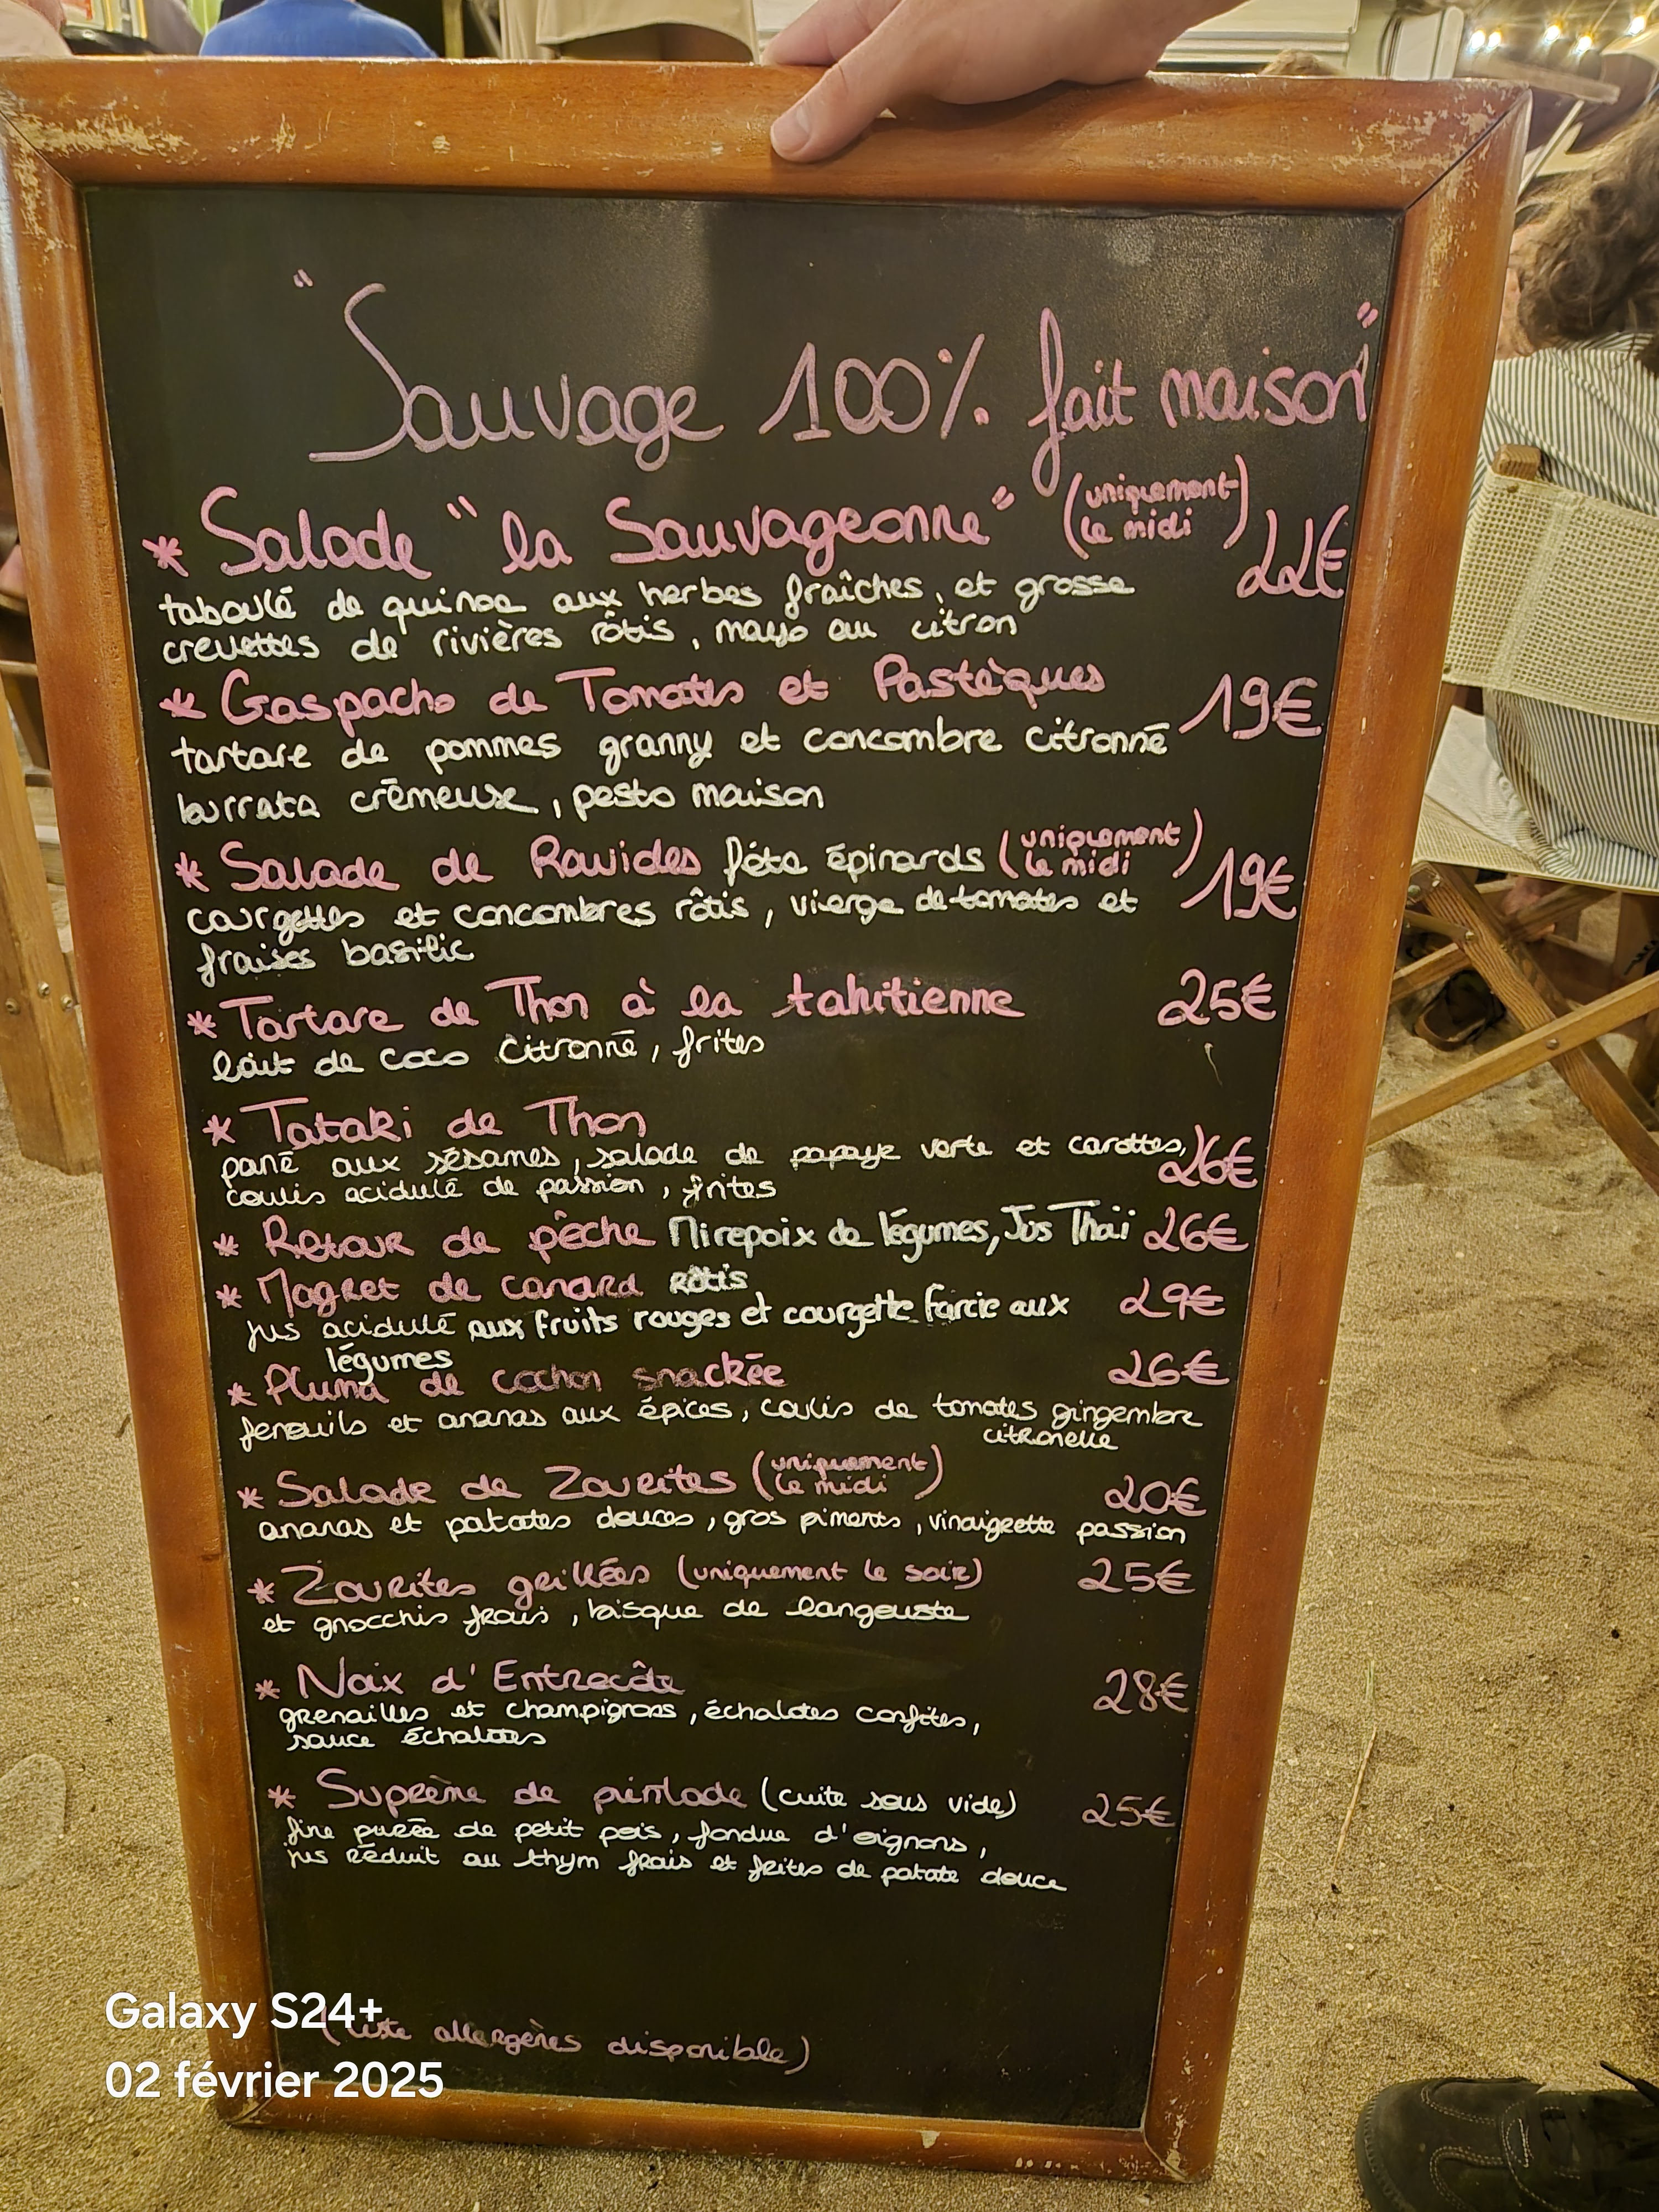 "Sauvage 100% fait maison"
* Salade "la Sauvageonne" (uniquement le midi) 22€
taboulé de quinoa aux herbes fraîches, et grosse
crevettes de rivières rôtis, mayo au citron
* Gaspacho de Tomates et Pastèques 19€
tartare de pommes granny et concombre citronné
burrata crémeuse, pesto maison
* Salade de Ravioles féta épinards (uniquement le midi) 19€
courgettes et concombres rôtis, vierge de tomates et
fraises basilic
* Tartare de Thon à la tahitienne 25€
lait de coco citronné, frites
* Tataki de Thon
pané aux sésames, salade de papaye verte et carottes, 26€
coulis acidulé de passion, frites
* Retour de pêche Mirepoix de légumes, Jus Thaï 26€
* Magret de canard rôtis
jus acidulé aux fruits rouges et courgette farcie aux 29€
légumes
* Pluma de cochon snackée 26€
fenouils et ananas aux épices, coulis de tomates gingembre
citronelle
* Salade de Zourites (uniquement le midi) 20€
ananas et patates douces, gros piments, vinaigrette passion
* Zourites grillées (uniquement le soir) 25€
et gnocchis frais, bisque de langouste
* Noix d'Entrecôte 28€
grenailles et champignons, échalotes confites,
sauce échalotes
* Suprême de pintade (cuite sous vide) 25€
fine purée de petit pois, fondue d'oignons,
jus réduit au thym frais et frites de patate douce
(liste allergènes disponible)
Galaxy S24+
02 février 2025